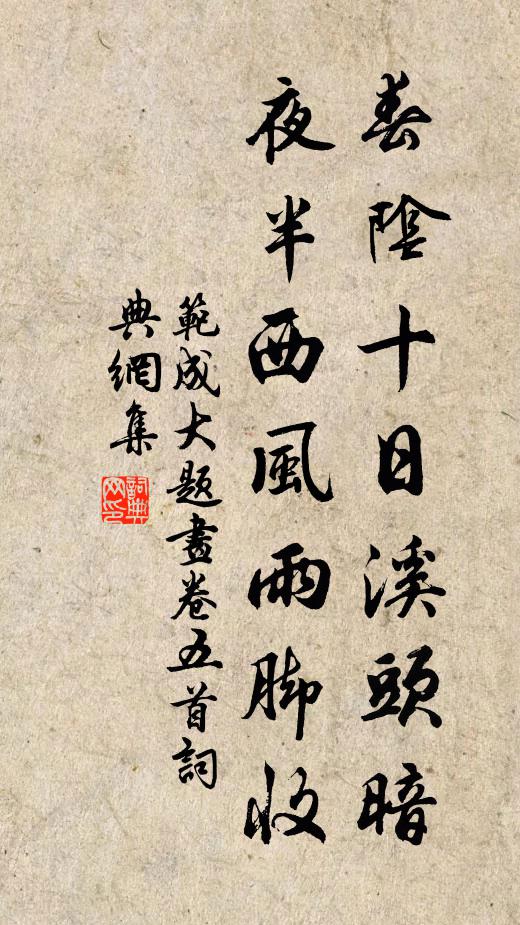 春陰十日溪頭暗
夜半西風雨脚收
範成大題畫卷五首詞
典網集
詞典網印